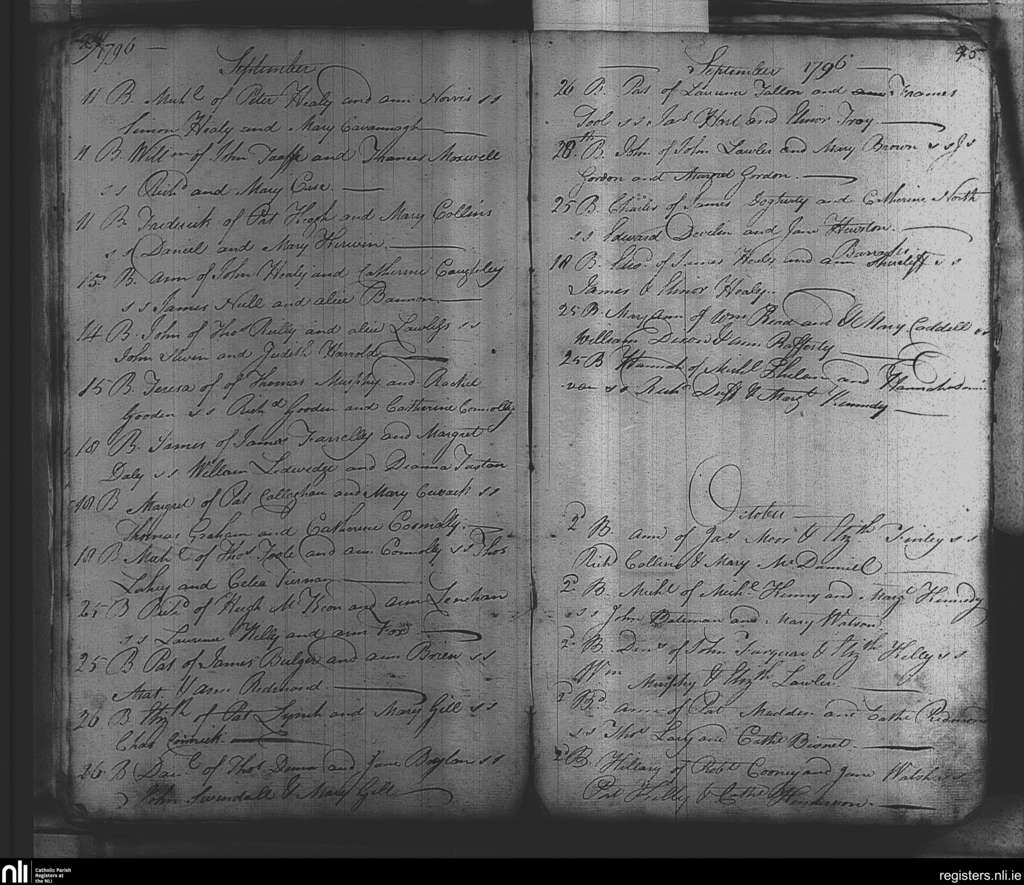 94 1796
September
11 B. Michl. of Peter Healy and ann Norris ss
Simon Healy and Mary Cavannagh
11 B. Willm of John Taaffe and Frances Maxwell
ss Richd and Mary Case.
11 B. Frederick of Pat Hugh and Mary Collins
ss Daniel and Mary Kirwin.
15 B. ann of John Healy and Catherine
ss James Hull and alice Bannon.
14 B. John of Thos Reilly and alice Lawless ss
John and Judith Harrold
15 B. Teresa of of Thomas Murphy and Rachel
Gooden ss Richd Gooden and Catherine Connolly
18 B. James of James Farrelley and Margret
Daly ss William Ledwedge and Dianna
18 B Margret of Pat Callaghan and Mary Cusack ss
Thomas Graham and Catherine Connolly.
18 B Michl of Thos Toole and ann Connolly ss Thos
and Celea Tiernan
25 B Richd of Hugh McKeon and ann Lenehan
ss Laurence Kelly and ann Fox
25 B Pat of James Bulger and ann Brien ss
& ann Redmond.
26 B Elizth of Pat Lynch and Mary Gill ss
Chas
26 B Danl. of Thos Dunn and Jane Boylan ss
John & Mary Gill
September 1796
95.
26 B. Pat of Laurence Fallon and Frances
Tool ss Jas and Elinor
28th B. John of John Lawler and Mary Brown ss Js
Gordon and Margret Gordon.
25 B. Charles of James Fogherty and Catherine North
ss Edward Develin and Jane
18 B. of James Healy and ann ss
James & Elinor Healy.
25 B. Mary ann of Wm Bond and Mary Caddell ss
William Dixon & ann Rafferty
25 B Hannah of Michl Phelan and Hannah
ss Michl Duff & Margt Kennedy
October
2 B. ann of Jas Moor & Elizth Finley ss
Richd Collins & Mary McDanniel
2 B. Michl of Michl Kenny and Margt Kennedy
ss John Bateman and Mary Watson.
2 B. of John & Elizth Kelly ss
Wm Murphy & Elizth Lawler.
2 Bd ann of Pat Madden and Cathe Redmond
ss Thos Lacy and Cathe
2 B Hillary of Robt Cooney and Jane Walsh ss
Pat Kelly & Cathe Henderson.
nli
Catholic Parish
Registers at
the NLI
registers.nli.ie